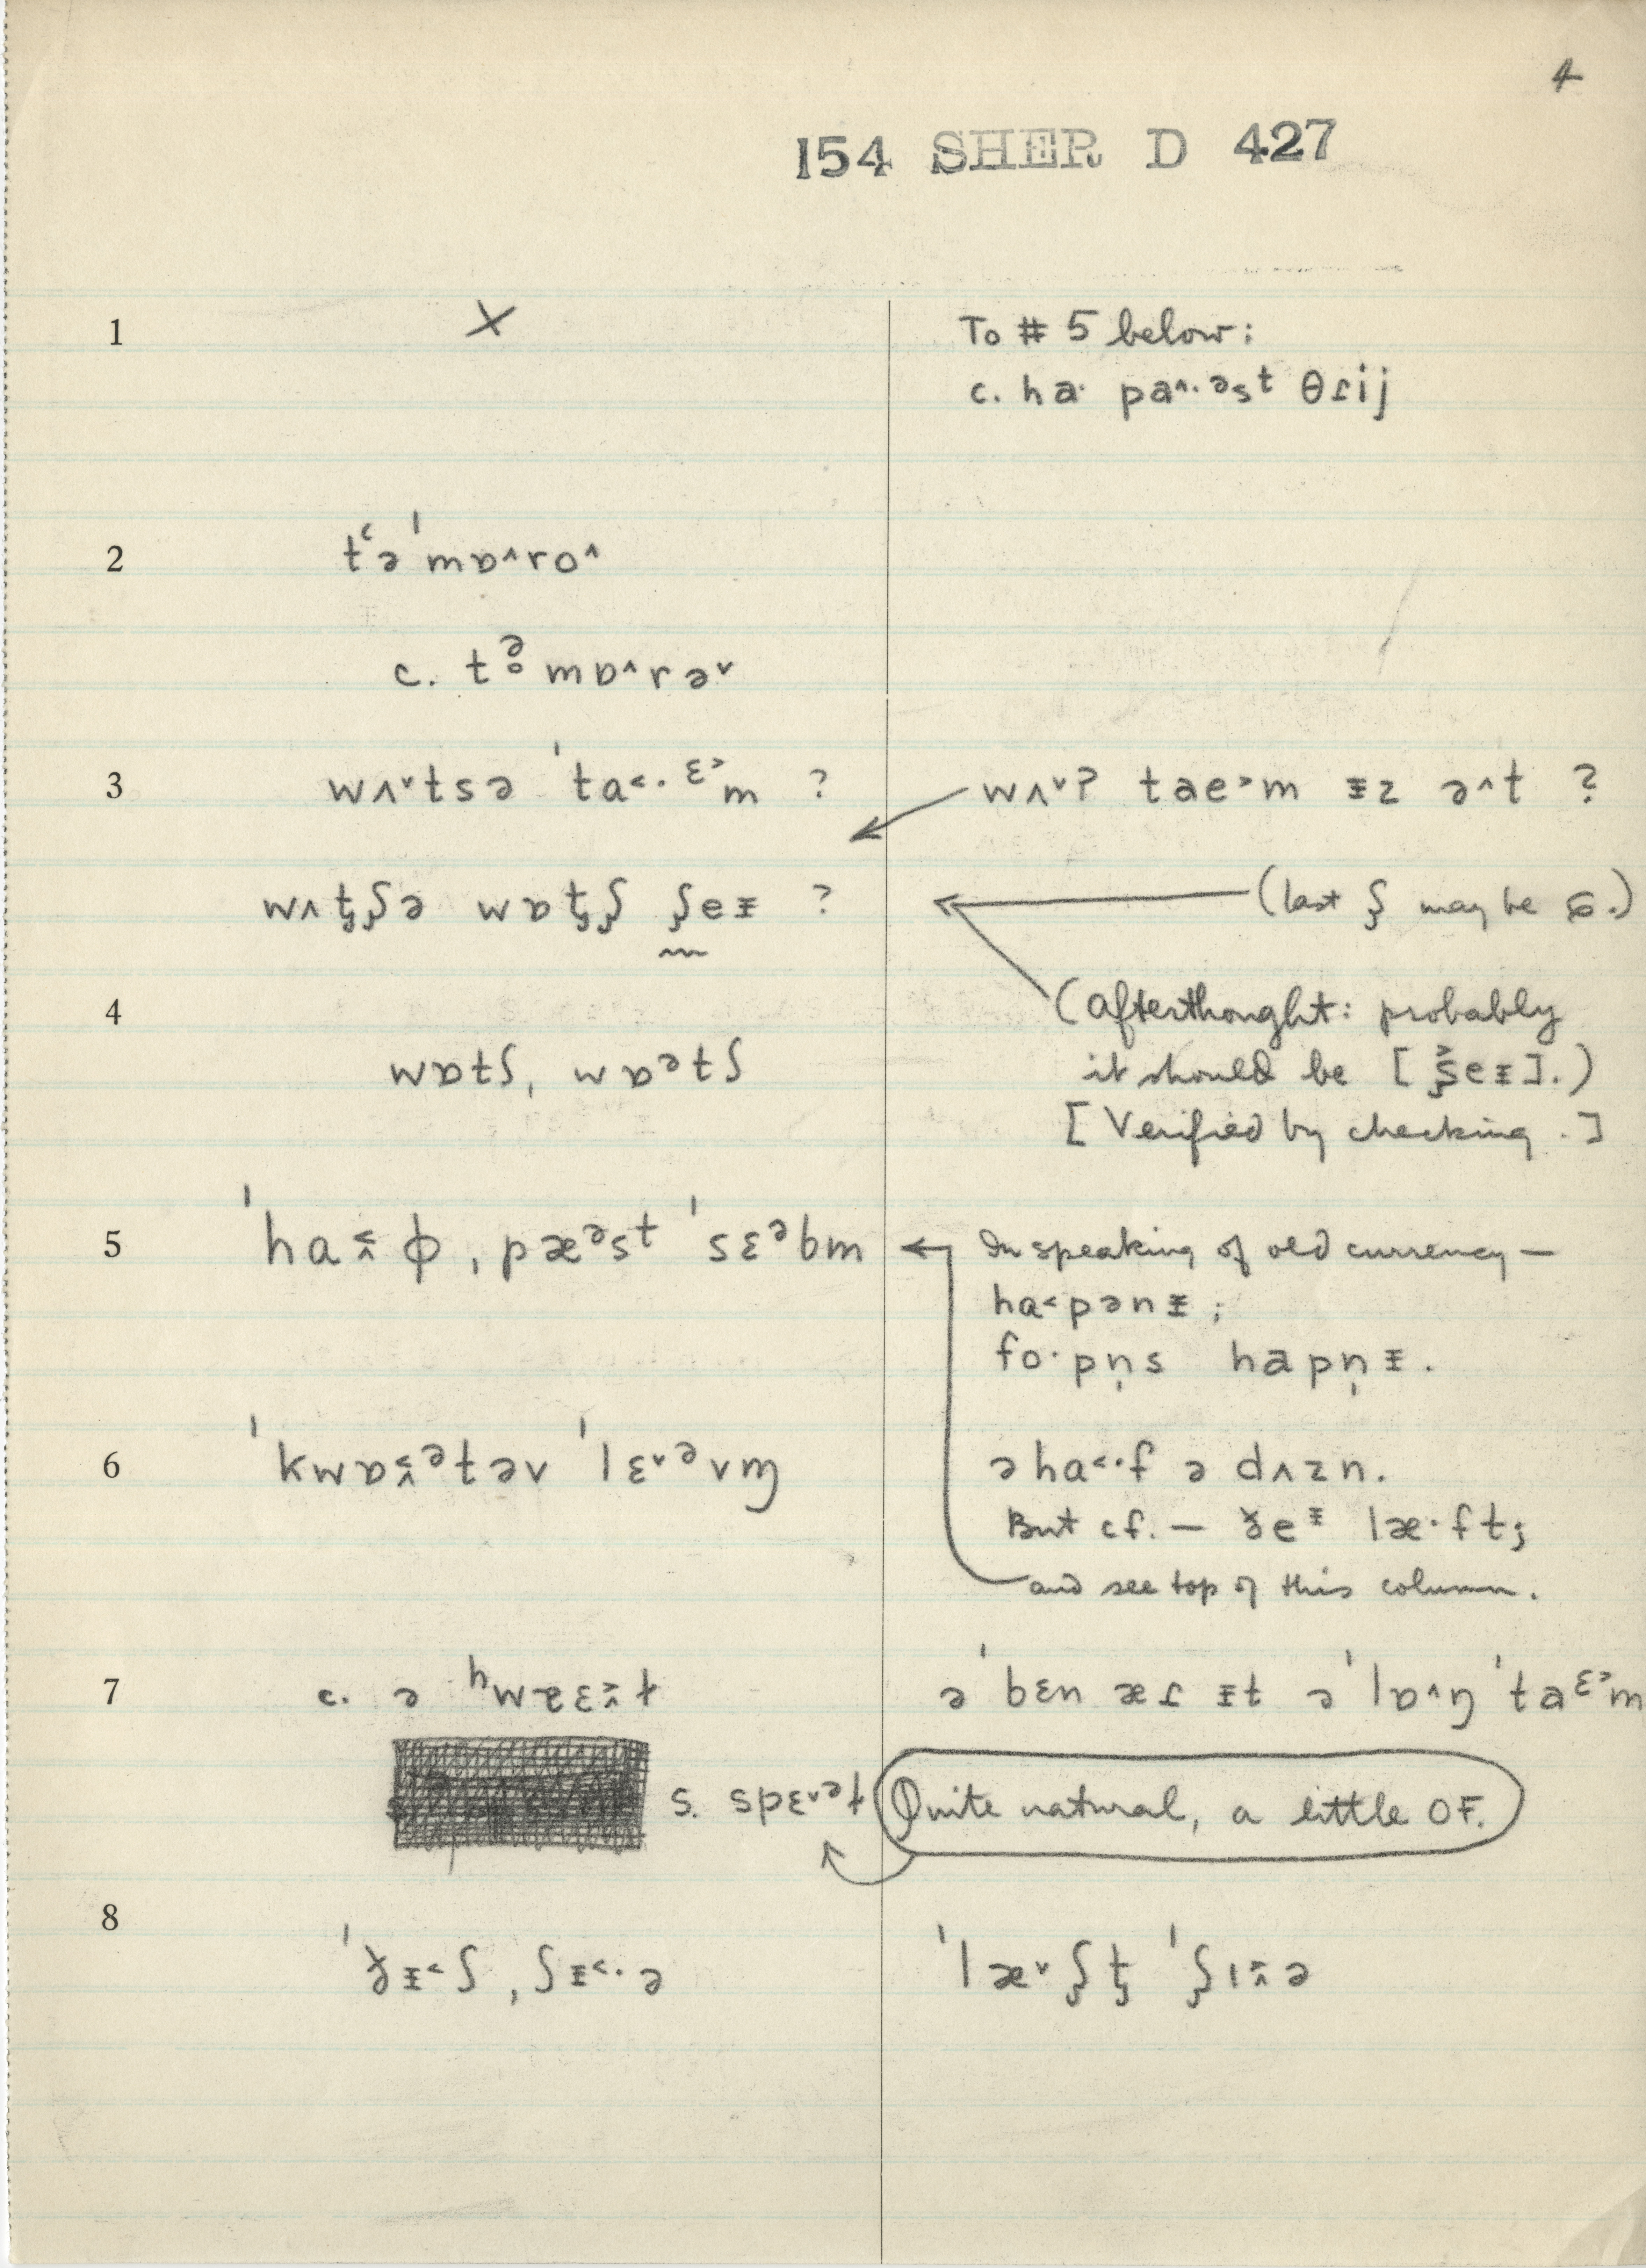 4
154 SHER D 427
1
X
To # 5 below:
c. ha· pa^·ᵊsᵗ θɾij
2
tʻə ˈmɒ^ro^
c. tᵊ̥ mɒ^rə˅
3
wʌ˅tsə ˈta˂·ᵋ˃m ?
wʌ˅ʔ tae˃m ᵻz ə^t ?
wʌt̡ʃə wɒt̡ʃ ʃ̡eᵻ ?
(last ʃ̡ may be ɕ.)
4
wɒtʃ, wɒᵊtʃ
(Afterthought: probably
it should be [ ʃ̡˃eᵻ].)
[Verified by checking.]
5
ˈha˂^ ɸ, pæᵊsᵗ ˈsɛᵊbm
In speaking of old currency —
ha˂pənᵻ ;
fo·pn̩s hapn̩ᵻ.
6
ˈkwɒ˂^ᵊtəv ˈlɛ˅ᵊvɱ
ə ha˂·f ə dʌzn.
But cf. — ðeᵻ læ·ft;
and see top of this column.
7
c. ə ʰwɐɛ˃^t
ə ˈbɛn æɾ ᵻt ə ˈlɒ^ŋ ˈtaᵋ˃m
s. spɛ˅ᵊt
Quite natural, a little OF.
8
ˈɣᵻ˂ʃ, ʃᵻ˂·ə
ˈlæ˅ʃ̡t̡ ˈʃ̡ɪ˂^ə